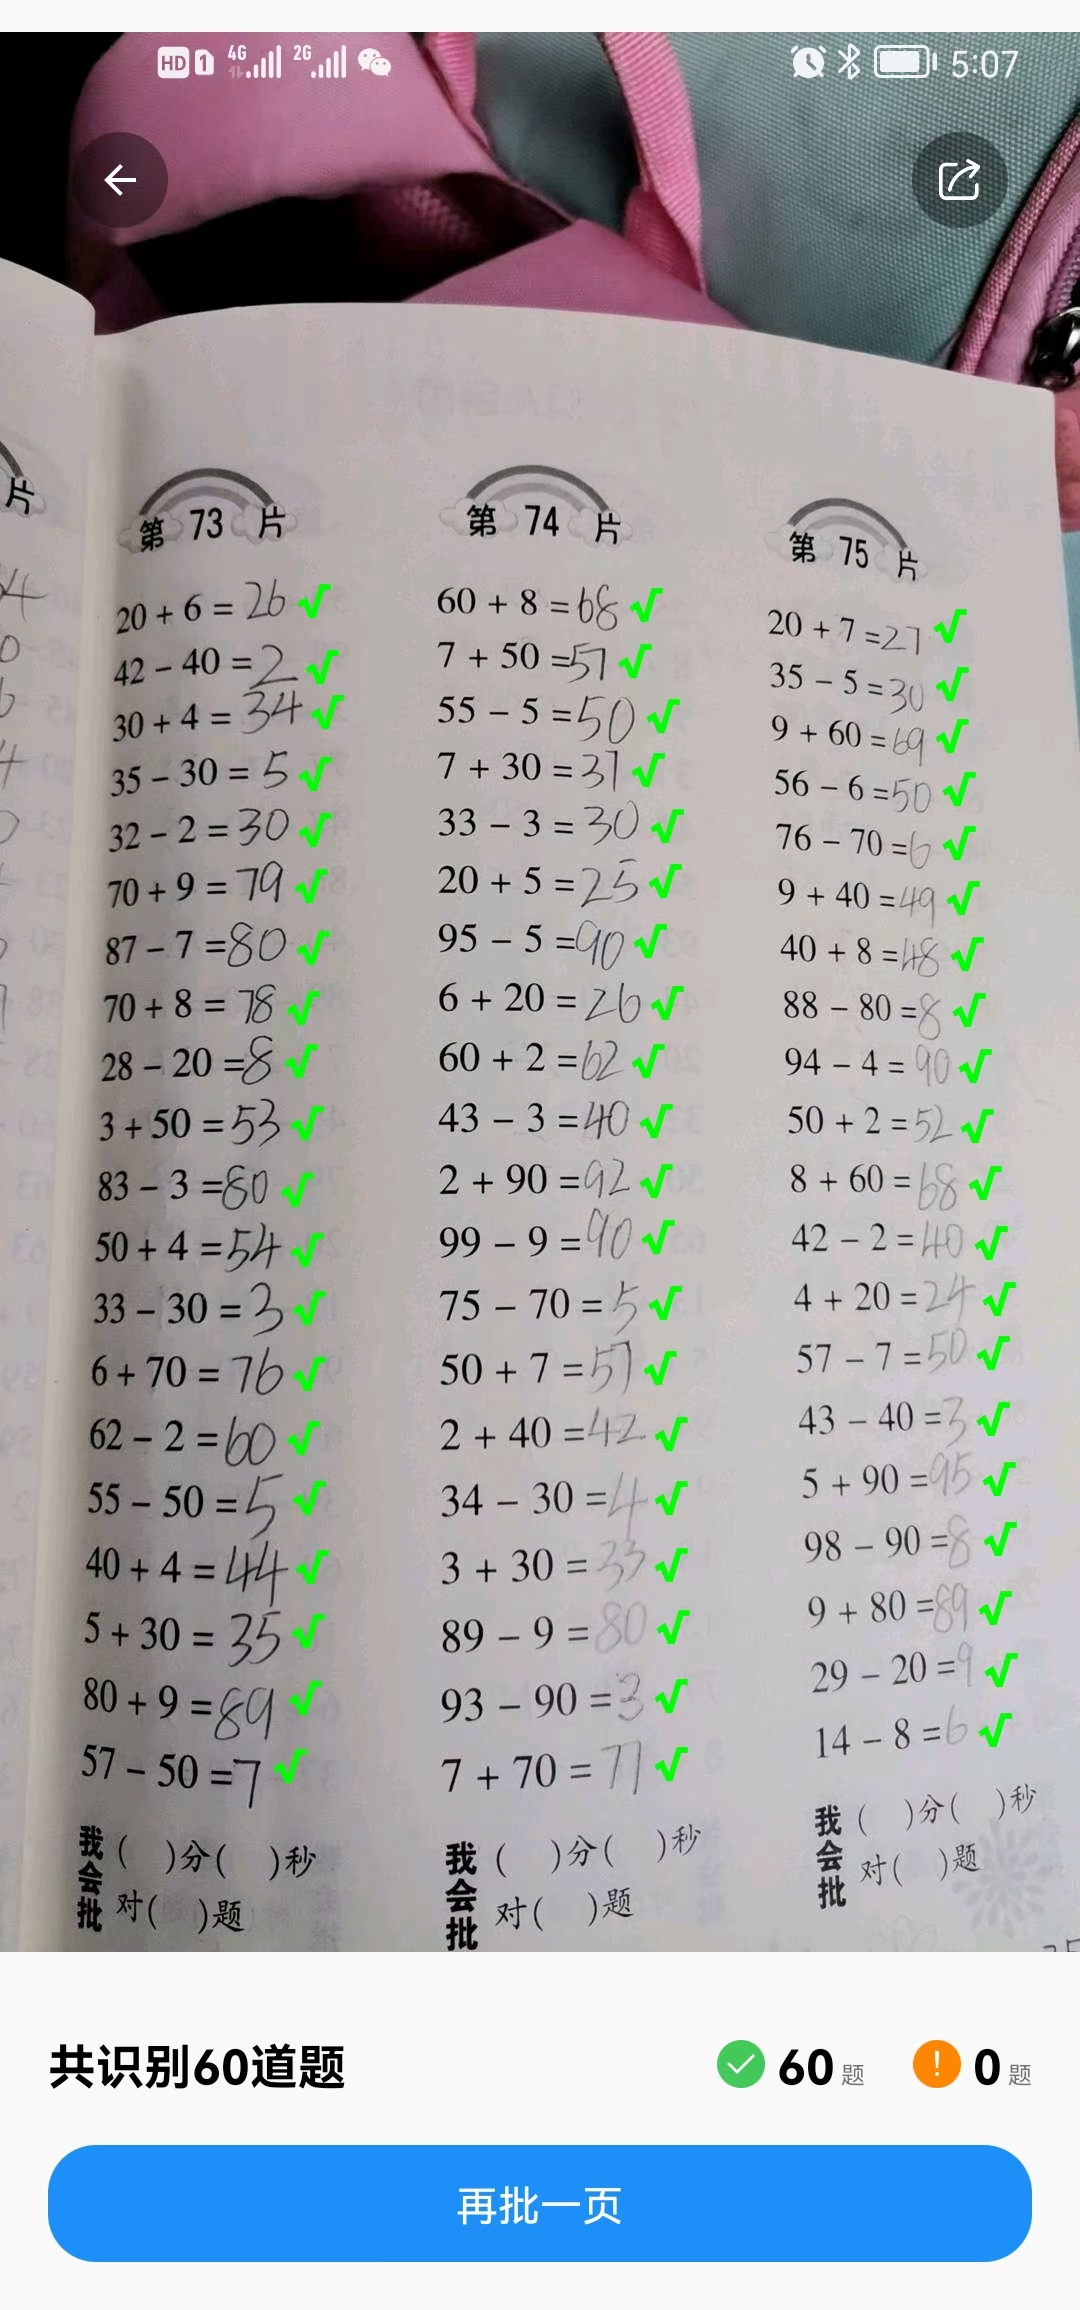 HD 1 4G 2G 5:07
片
第 73 片
20 + 6 = 26
42 - 40 = 2
30 + 4 = 34
35 - 30 = 5
32 - 2 = 30
70 + 9 = 79
87 - 7 = 80
70 + 8 = 78
28 - 20 = 8
3 + 50 = 53
83 - 3 = 80
50 + 4 = 54
33 - 30 = 3
6 + 70 = 76
62 - 2 = 60
55 - 50 = 5
40 + 4 = 44
5 + 30 = 35
80 + 9 = 89
57 - 50 = 7
我会批 ( )分( )秒
对( )题
第 74 片
60 + 8 = 68
7 + 50 = 57
55 - 5 = 50
7 + 30 = 37
33 - 3 = 30
20 + 5 = 25
95 - 5 = 90
6 + 20 = 26
60 + 2 = 62
43 - 3 = 40
2 + 90 = 92
99 - 9 = 90
75 - 70 = 5
50 + 7 = 57
2 + 40 = 42
34 - 30 = 4
3 + 30 = 33
89 - 9 = 80
93 - 90 = 3
7 + 70 = 77
我会批 ( )分( )秒
对( )题
第 75 片
20 + 7 = 27
35 - 5 = 30
9 + 60 = 69
56 - 6 = 50
76 - 70 = 6
9 + 40 = 49
40 + 8 = 48
88 - 80 = 8
94 - 4 = 90
50 + 2 = 52
8 + 60 = 68
42 - 2 = 40
4 + 20 = 24
57 - 7 = 50
43 - 40 = 3
5 + 90 = 95
98 - 90 = 8
9 + 80 = 89
29 - 20 = 9
14 - 8 = 6
我会批 ( )分( )秒
对( )题
共识别60道题 60题 0题
再批一页